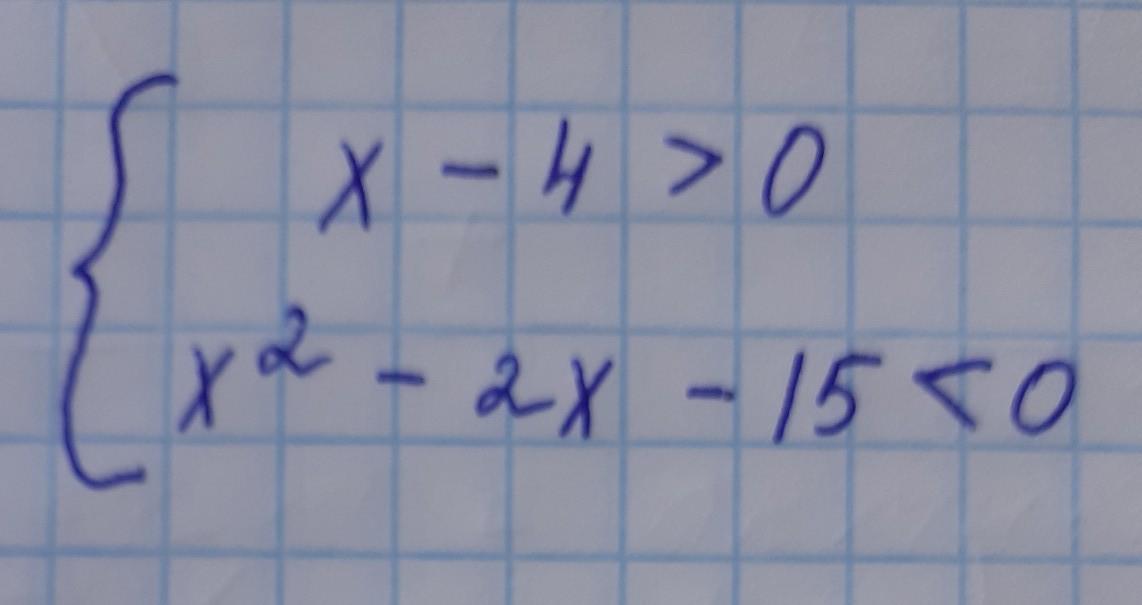 x - 4 > 0
x² - 2x - 15 < 0